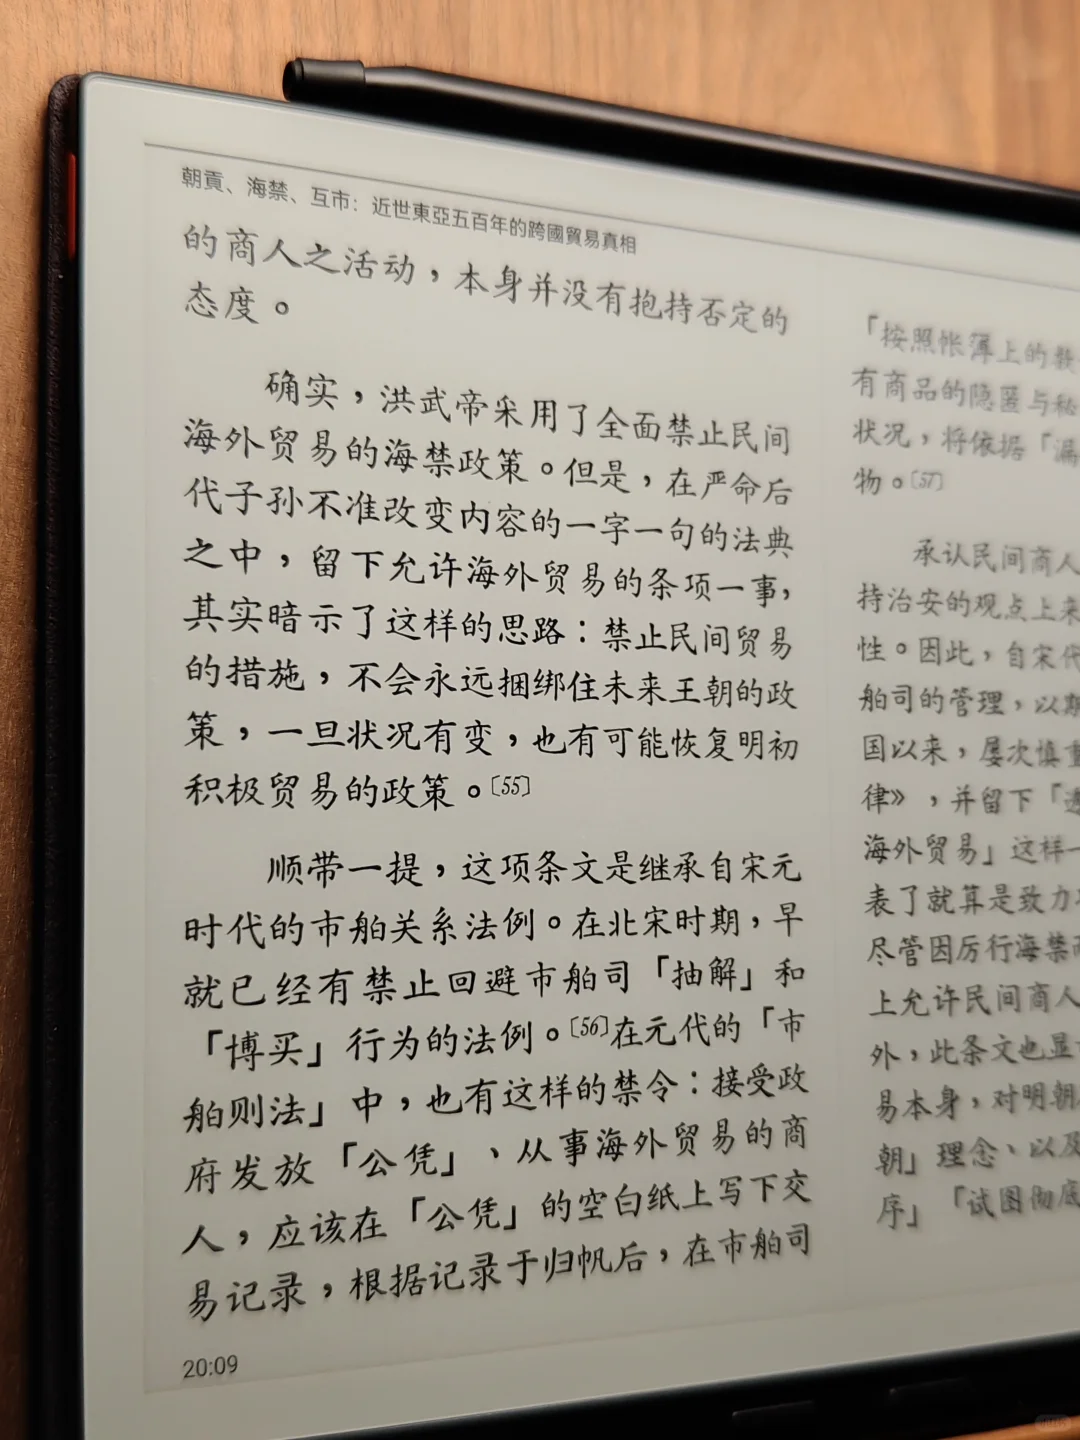 朝貢、海禁、互市：近世東亞五百年的跨國貿易真相
的商人之活动，本身并没有抱持否定的
态度。
确实，洪武帝采用了全面禁止民间
海外贸易的海禁政策。但是，在严命后
代子孙不准改变内容的一字一句的法典
之中，留下允许海外贸易的条项一事，
其实暗示了这样的思路：禁止民间贸易
的措施，不会永远捆绑住未来王朝的政
策，一旦状况有变，也有可能恢复明初
积极贸易的政策。〔55〕
顺带一提，这项条文是继承自宋元
时代的市舶关系法例。在北宋时期，早
就已经有禁止回避市舶司「抽解」和
「博买」行为的法例。〔56〕在元代的「市
舶则法」中，也有这样的禁令：接受政
府发放「公凭」、从事海外贸易的商
人，应该在「公凭」的空白纸上写下交
易记录，根据记录于归帆后，在市舶司
「按照帐簿上的数
有商品的隐匿与秘
状况，将依据「漏
物。〔57〕
承认民间商人
持治安的观点上来
性。因此，自宋代
舶司的管理，以期
国以来，屡次慎重
律》，并留下「
海外贸易」这样一
表了就算是致力
尽管因厉行海禁
上允许民间商人
外，此条文也显
易本身，对明朝
朝」理念、以及
序」「试图彻底
20:09